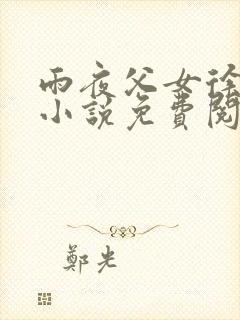 雨夜父女徐
小說免費閱
鄭光